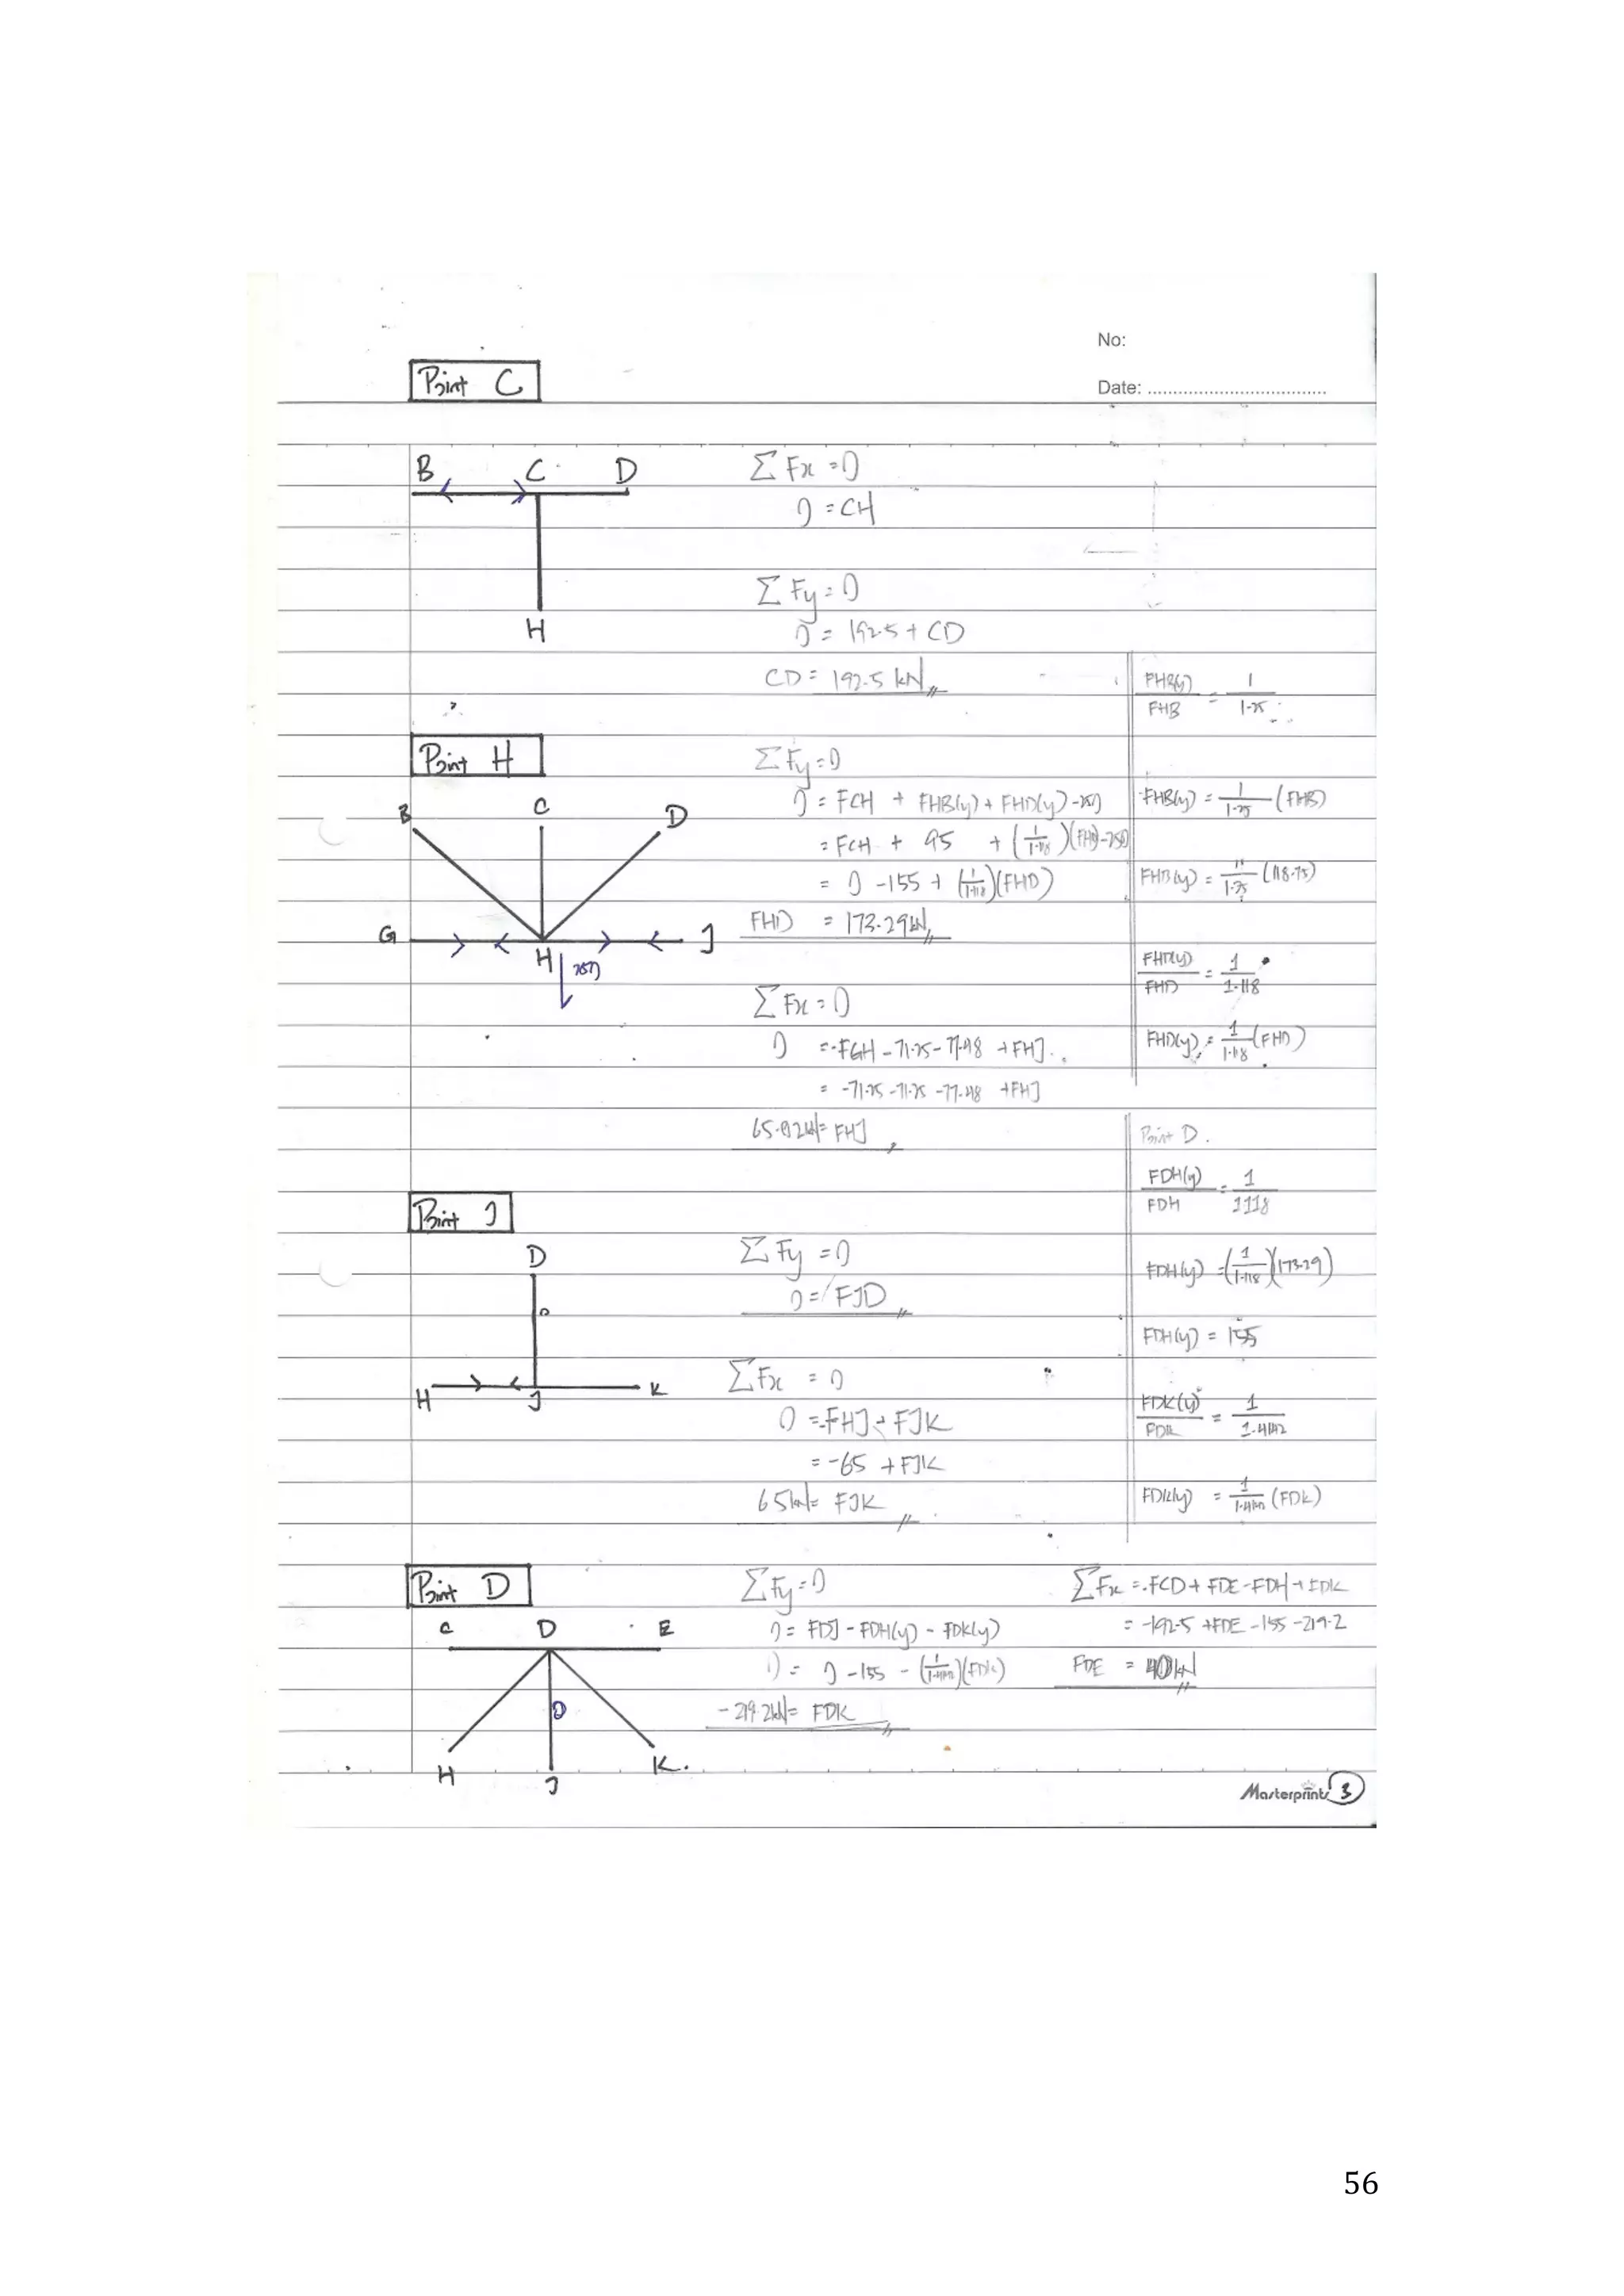 No:
Date: ..................................
Point C
B C D
H
ΣFx = 0
0 = CH
ΣFy = 0
0 = 192.5 + CD
CD = 192.5 kN
FHB(y)/FHB = 1/1.25
Point H
B C D
G H J
250
ΣFy = 0
0 = FCH + FHB(y) + FHD(y) - 250
= FCH + 95 + (1/1.118)(FHD) - 250
= 0 - 155 + (1/1.118)(FHD)
FHD = 173.29 kN
FHB(y) = 1/1.25 (FHB)
FHB(y) = 1/1.25 (118.75)
FHD(y)/FHD = 1/1.118
FHD(y) = 1/1.118 (FHD)
ΣFx = 0
0 = -FGH - 71.25 - 77.48 + FHJ
= -71.25 - 71.25 - 77.48 + FHJ
65.02 kN = FHJ
Point D.
FDH(y)/FDH = 1/1118
FDH(y) = (1/1.118)(173.29)
FDH(y) = 155
FDK(y)/FDK = 1/1.4142
FDK(y) = 1/1.4142 (FDK)
Point J
D
0
H J K
ΣFy = 0
0 = FJD
ΣFx = 0
0 = -FHJ + FJK
= -65 + FJK
65 kN = FJK
Point D
C D E
0
H J K.
ΣFy = 0
0 = FDJ - FDH(y) - FDK(y)
0 = 0 - 155 - (1/1.4142)(FDK)
-219.2 kN = FDK
ΣFx = -FCD + FDE - FDH + FDK
= -192.5 + FDE - 155 - 219.2
FDE = 40 kN
Masterprint
3
56